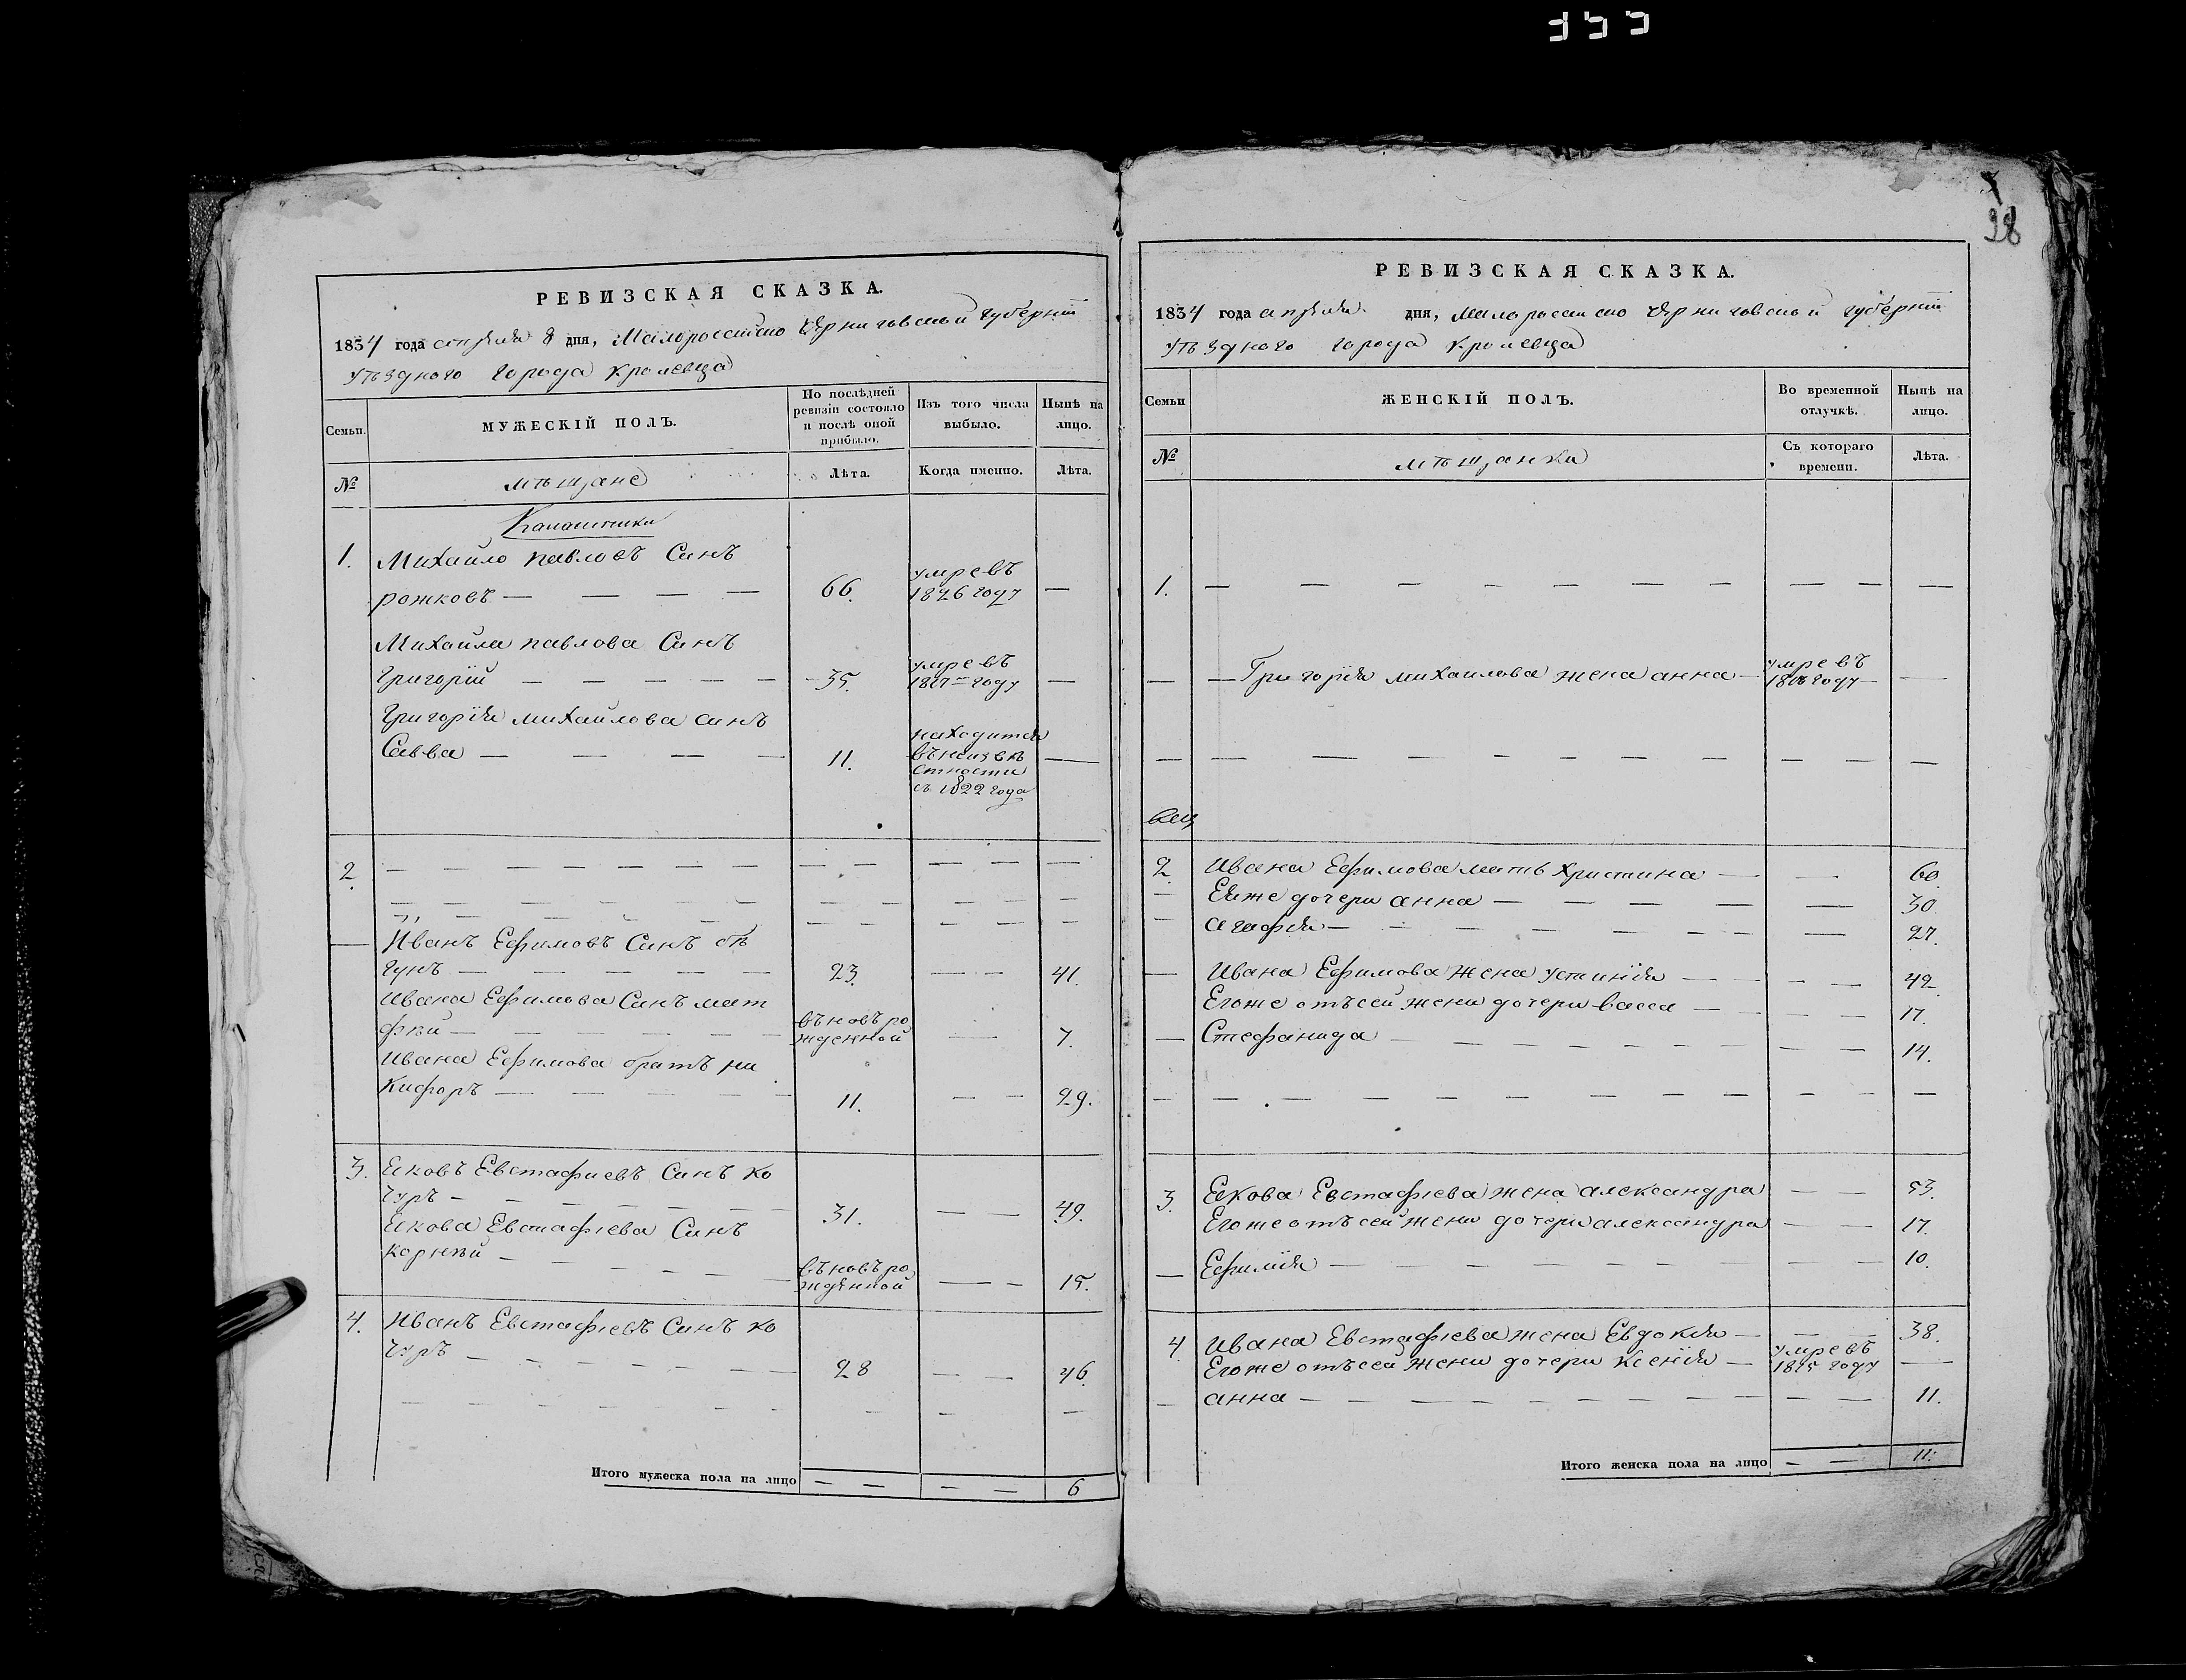 28
РЕВИЗСКАЯ СКАЗКА.
1834 года апреля 8 дня, Малороссийско Черниговской губернии
уезднаго города Кролевца
Семьи.
МУЖЕСКІЙ ПОЛЪ.
По послѣдней ревизіи состояло и послѣ оной прибыло.
Изъ того числа выбыло.
Нынѣ на лицо.
№
мѣщане
Лѣта.
Когда именно.
Лѣта.
1. Михайло павловъ Синъ
рожковъ — — — — 66. умревъ 1826 году —
Михайла павлова Синъ
Григорій — — — — — 35. умревъ году —
Григорія михайлова синъ
Савва — — — — 11. находится въ неизвѣстности съ 1822 года —
2
— Иванъ Ефимовъ Синъ
гунъ — — — — — 23. — — 41.
Ивана Ефимова Синъ мат
фей — — — — — въновь рожденной — 7.
Ивана Ефимова братъ ни
кифоръ — — — — 11. — — 29.
3. Яковъ Евстафиевъ Синъ ко
чуръ — — — — — 31. — — 49.
Якова Евстафіева Синъ
корнѣй — — — — — въновь рожденной — — 15.
4. Иванъ Евстафіевъ Синъ ко
чуръ — — — — — 28 — — 46.
Итого мужеска пола на лицо — — — — 6
РЕВИЗСКАЯ СКАЗКА.
1834 года апреля дня, Малороссийско Черниговской губернии
уезднаго города Кролевца
Семьи
ЖЕНСКІЙ ПОЛЪ.
Во временной отлучкѣ.
Нынѣ на лицо.
№
мѣщанки
Съ котораго времени.
Лѣта.
1. — — — — — — — — — —
— — Григорія михаилова жена анна — умревъ году — —
2. Ивана Ефимова мать христина — — 60.
— Еяже дочери анна — — — — — 30.
— агафія — — — — — — — 27.
— Ивана Ефимова жена устинія — — — — 42.
Егоже отъ сей жени дочери васса — — — 17.
— Стефанида — — — — — — — — 14.
3. Якова Евстафіева жена александра — — 53.
Егоже отъ сей жени дочери александра — — 17.
— Ефимія — — — — — — — 10.
4. Ивана Евстафіева жена Евдокія — — — 38.
Егоже отъ сей жени дочери Ксенія — умревъ 1825 году —
— анна — — — — — — — — — — 11.
Итого женска пола на лицо — — 11.